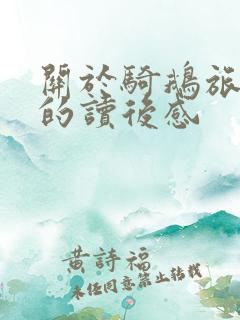 關於騎鵝旅
的讀後感
黄詩福
未经同意禁止转载